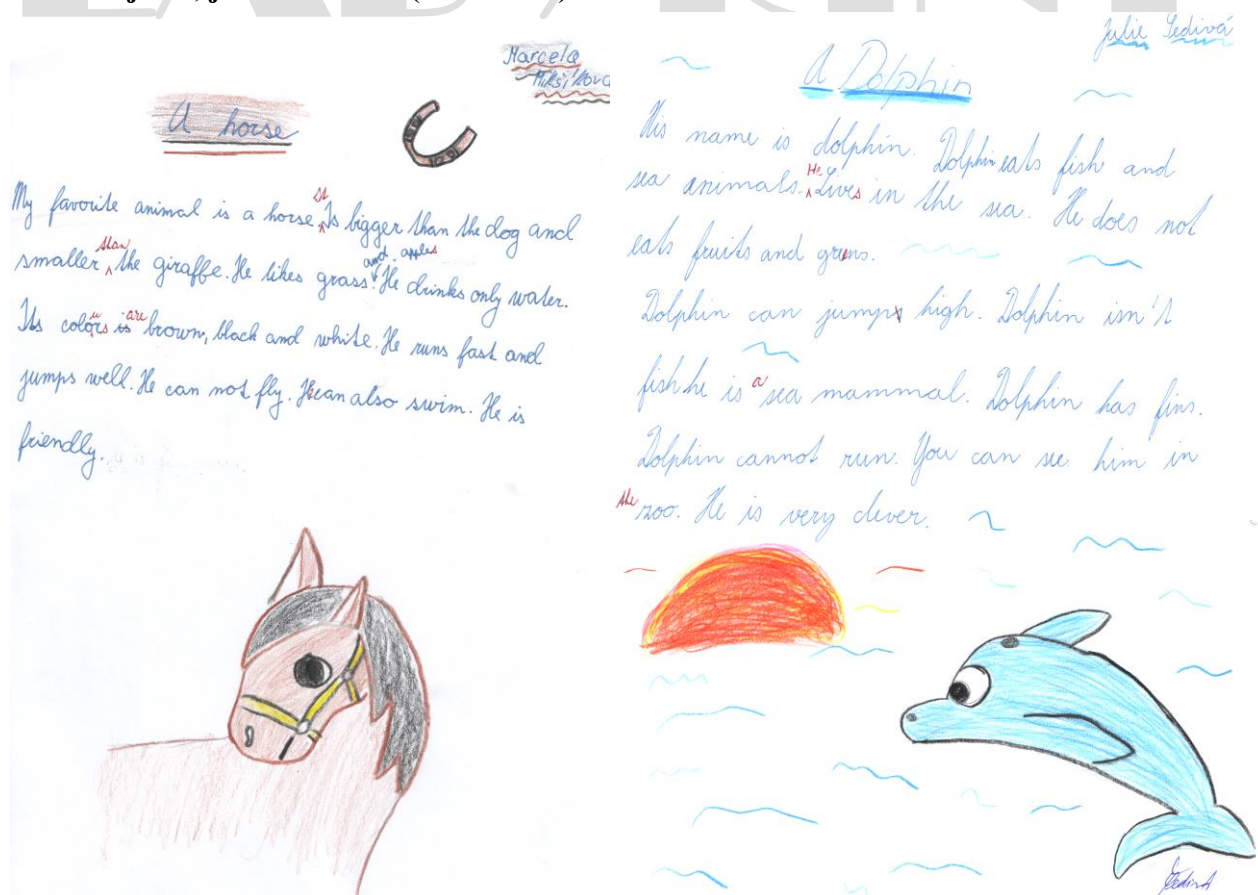 Marcela
Mikšíková
A horse
My favorite animal is a horse. It Is bigger than the dog and
smaller than the giraffe. He likes grass and apples. He drinks only water.
Its colours is are brown, black and white. He runs fast and
jumps well. He can not fly. He can also swim. He is
friendly.
Julie Šedivá
A Dolphin
His name is dolphin. Dolphin eats fish and
sea animals. He Lives in the sea. He does not
eats fruits and
Dolphin can jumps high. Dolphin isn't
fish he is a sea mammal. Dolphin has fins.
Dolphin cannot run. You can see him in
the zoo. He is very clever.